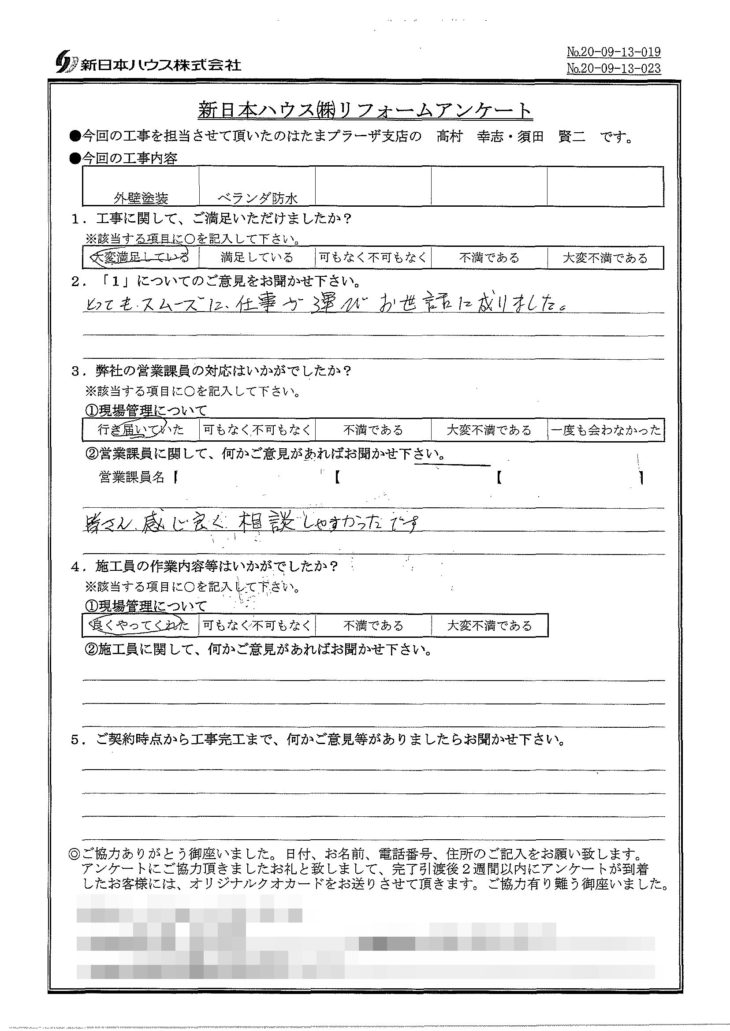 新日本ハウス株式会社
No.20-09-13-019
No.20-09-13-023
新日本ハウス㈱リフォームアンケート
●今回の工事を担当させて頂いたのはたまプラーザ支店の 髙村 幸志・須田 賢二 です。
●今回の工事内容
外壁塗装 ベランダ防水
1．工事に関して、ご満足いただけましたか？
※該当する項目に○を記入して下さい。
大変満足している 満足している 可もなく不可もなく 不満である 大変不満である
2．「1」についてのご意見をお聞かせ下さい。
とてもスムーズに、仕事が運びお世話に成りました。
3．弊社の営業課員の対応はいかがでしたか？
※該当する項目に○を記入して下さい。
①現場管理について
行き届いていた 可もなく不可もなく 不満である 大変不満である 一度も会わなかった
②営業課員に関して、何かご意見があればお聞かせ下さい。
営業課員名【 【 【 】
皆さん感じ良く相談しやすかったです
4．施工員の作業内容等はいかがでしたか？
※該当する項目に○を記入して下さい。
①現場管理について
良くやってくれた 可もなく不可もなく 不満である 大変不満である
②施工員に関して、何かご意見があればお聞かせ下さい。
5．ご契約時点から工事完工まで、何かご意見等がありましたらお聞かせ下さい。
◎ご協力ありがとう御座いました。日付、お名前、電話番号、住所のご記入をお願い致します。
アンケートにご協力頂きましたお礼と致しまして、完了引渡後２週間以内にアンケートが到着
したお客様には、オリジナルクオカードをお送りさせて頂きます。ご協力有り難う御座いました。